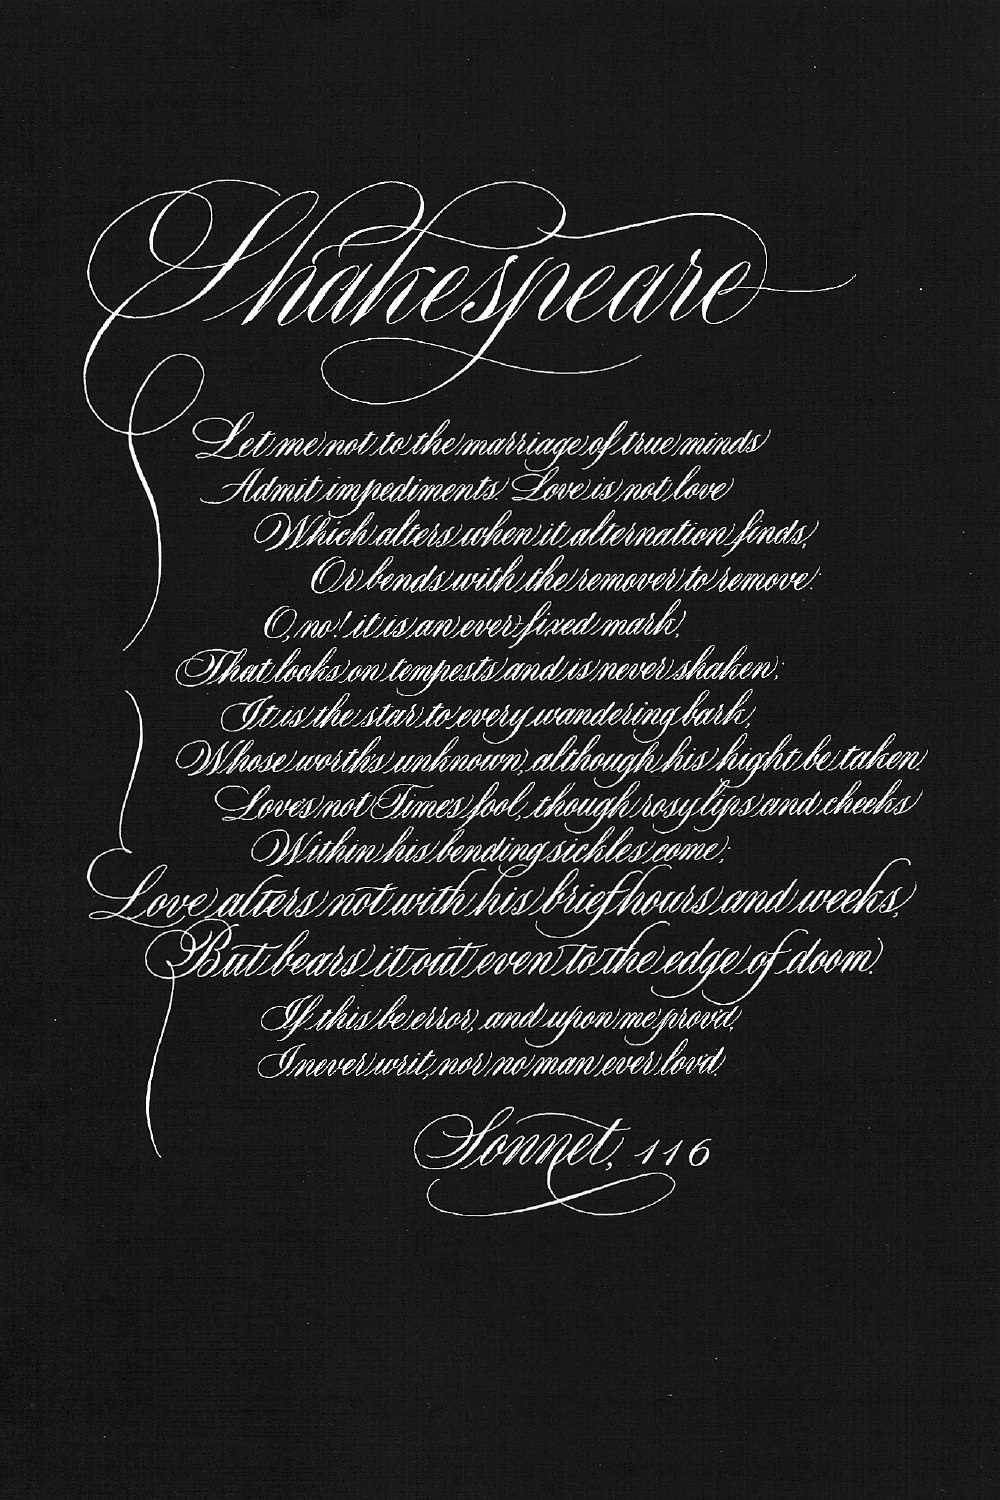 Shakespeare
Let me not to the marriage of true minds
Admit impediments. Love is not love
Which alters when it alternation finds,
Or bends with the remover to remove:
O, no! it is an ever-fixed mark,
That looks on tempests and is never shaken;
It is the star to every wandering bark,
Whose worth's unknown, although his hight be taken.
Love's not Time's fool, though rosy lips and cheeks
Within his bending sickles come;
Love alters not with his brief hours and weeks,
But bears it out even to the edge of doom.
If this be error, and upon me prov'd,
I never writ, nor no man ever lov'd.
Sonnet, 116